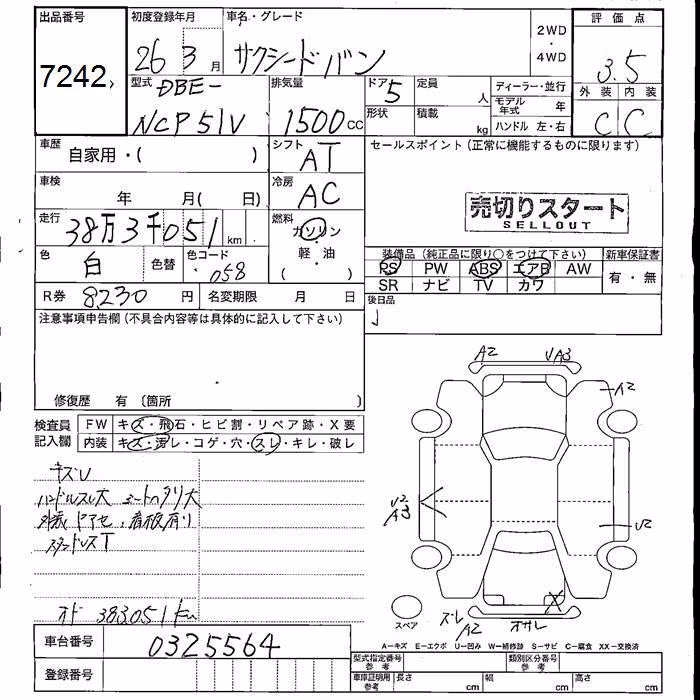 出品番号 初度登録年月 車名・グレード 2WD・4WD 評価点
7242 26 3 月 サクシードバン 3.5
型式 DBE- 排気量 ドア 5 定員 人 ディーラー・並行 外装 内装
NCP51V 1500 cc 形状 積載 kg モデル年式 年 C C
ハンドル 左・右
車歴 自家用・( ) シフト AT セールスポイント(正常に機能するものに限ります)
車検 年 月( 日) 冷房 AC 売切りスタート
SELLOUT
走行 38万3千051 km 燃料 ガソリン
軽・油
( )
色 白 色替 色コード 058 装備品(純正品に限り○をつけて下さい) 新車保証書
PS PW ABS エアB AW 有・無
SR ナビ TV カワ
R券 8230 円 名変期限 月 日 後日品
注意事項申告欄(不具合内容等は具体的に記入して下さい)
修復歴 有 〔箇所 〕
A2 VA3
A2
検査員 FW キズ・飛石・ヒビ割・リペア跡・X要
記入欄 内装 キズ・汚レ・コゲ・穴・スレ・キレ・破レ
キズU
ハンドルスレ大 シートヘタリ大
外装 ヤケ 看板有り
スタッドレスT
U2
A3
U2
オド 383,051 km
スペア スレ A2 オサレ X
車台番号 0325564
A-キズ E-エクボ U-凹み W-補修跡 S-サビ C-腐食 XX-交換済
登録番号
型式指定番号 参考 類別区分番号 参考
車庫証明用 参考 長さ cm 幅 cm 高さ cm